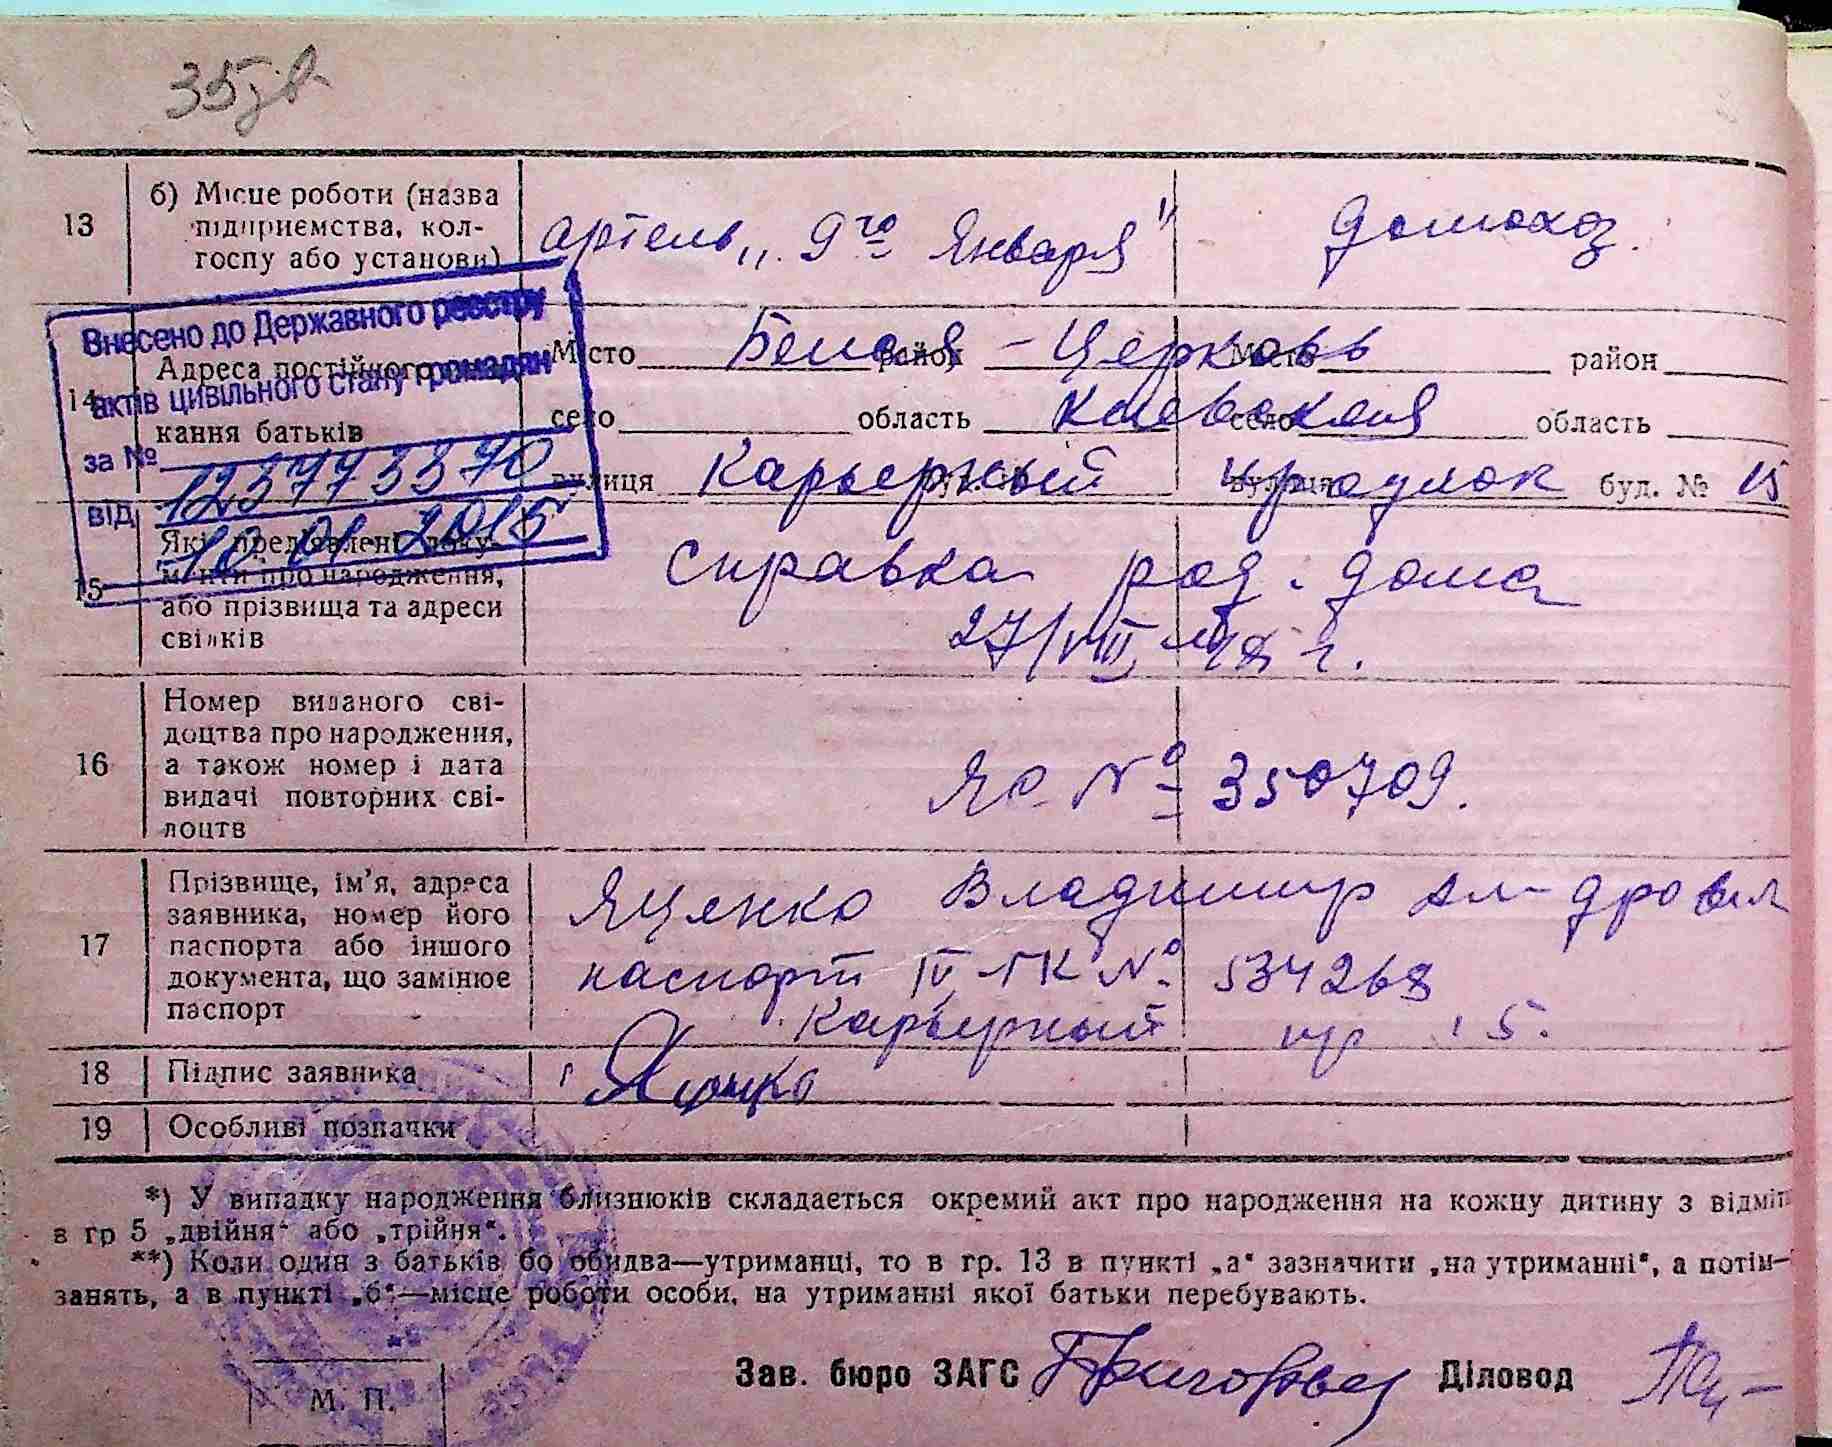 35
13 б) Місце роботи (назва підприємства, колгоспу або установи)
артель „9го Января"
домохоз.
Внесено до Державного реєстру
актів цивільного стану громадян
за №
від
10 01 2015
14 Адреса постійного
кання батьків
Місто Белая район - Церковь Місто район
село область Киевская село область
вулиця Карьерный вулиця буд. № 15
15 Які пред'явлені документи про народження, або прізвища та адреси свідків
справка род. дома
27/VIII 48 г.
16 Номер виданого свідоцтва про народження, а також номер і дата видачі повторних свідоцтв
№ 350709.
17 Прізвище, ім'я, адреса заявника, номер його паспорта або іншого документа, що замінює паспорт
Яценко Владимир
паспорт IV-ГК № 534268
Карьерный пр 15.
18 Підпис заявника
19 Особливі позначки
*) У випадку народження близнюків складається окремий акт про народження на кожну дитину з відміт
в гр 5 „двійня“ або „трійня“.
**) Коли один з батьків бо обидва—утриманці, то в гр. 13 в пункті „а“ зазначити „на утриманні“, а потім—
занять, а в пункті „б“—місце роботи особи, на утриманні якої батьки перебувають.
Зав. бюро ЗАГС Діловод
М. П.